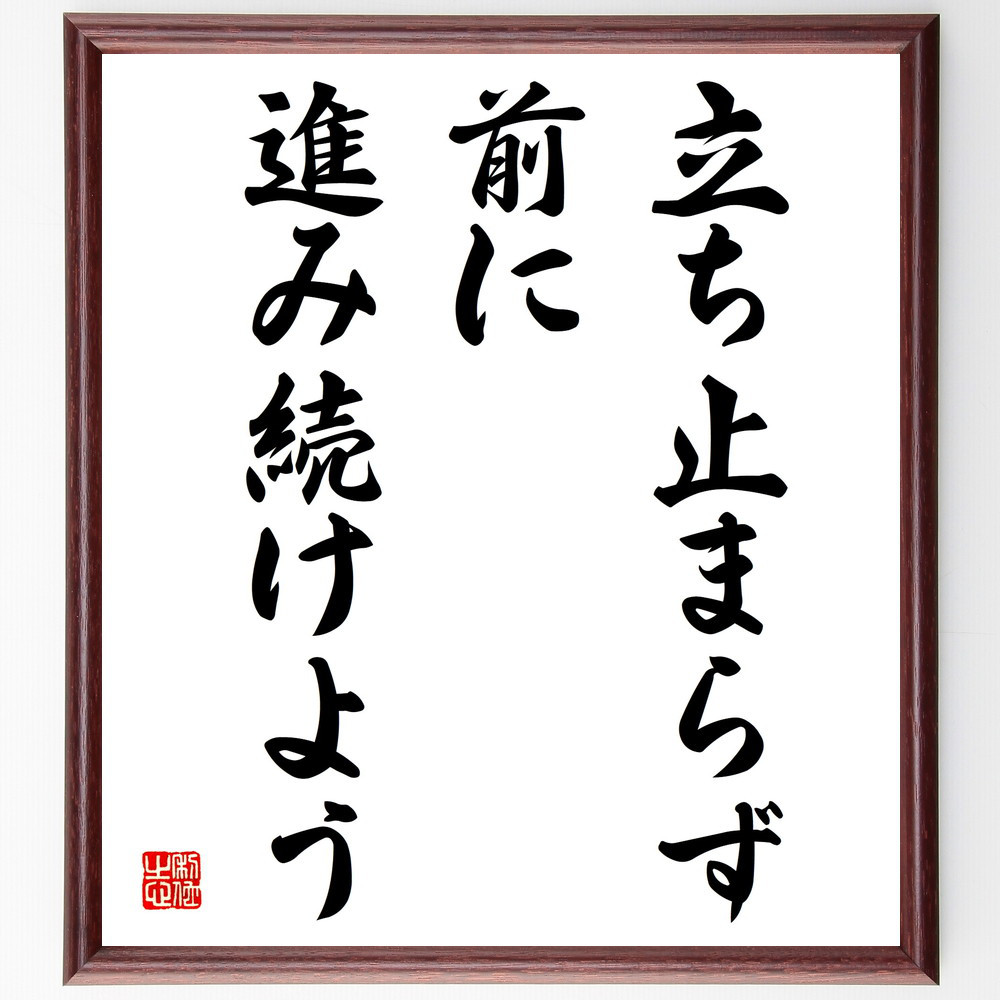 立ち止まらず
前に
進み続けよう